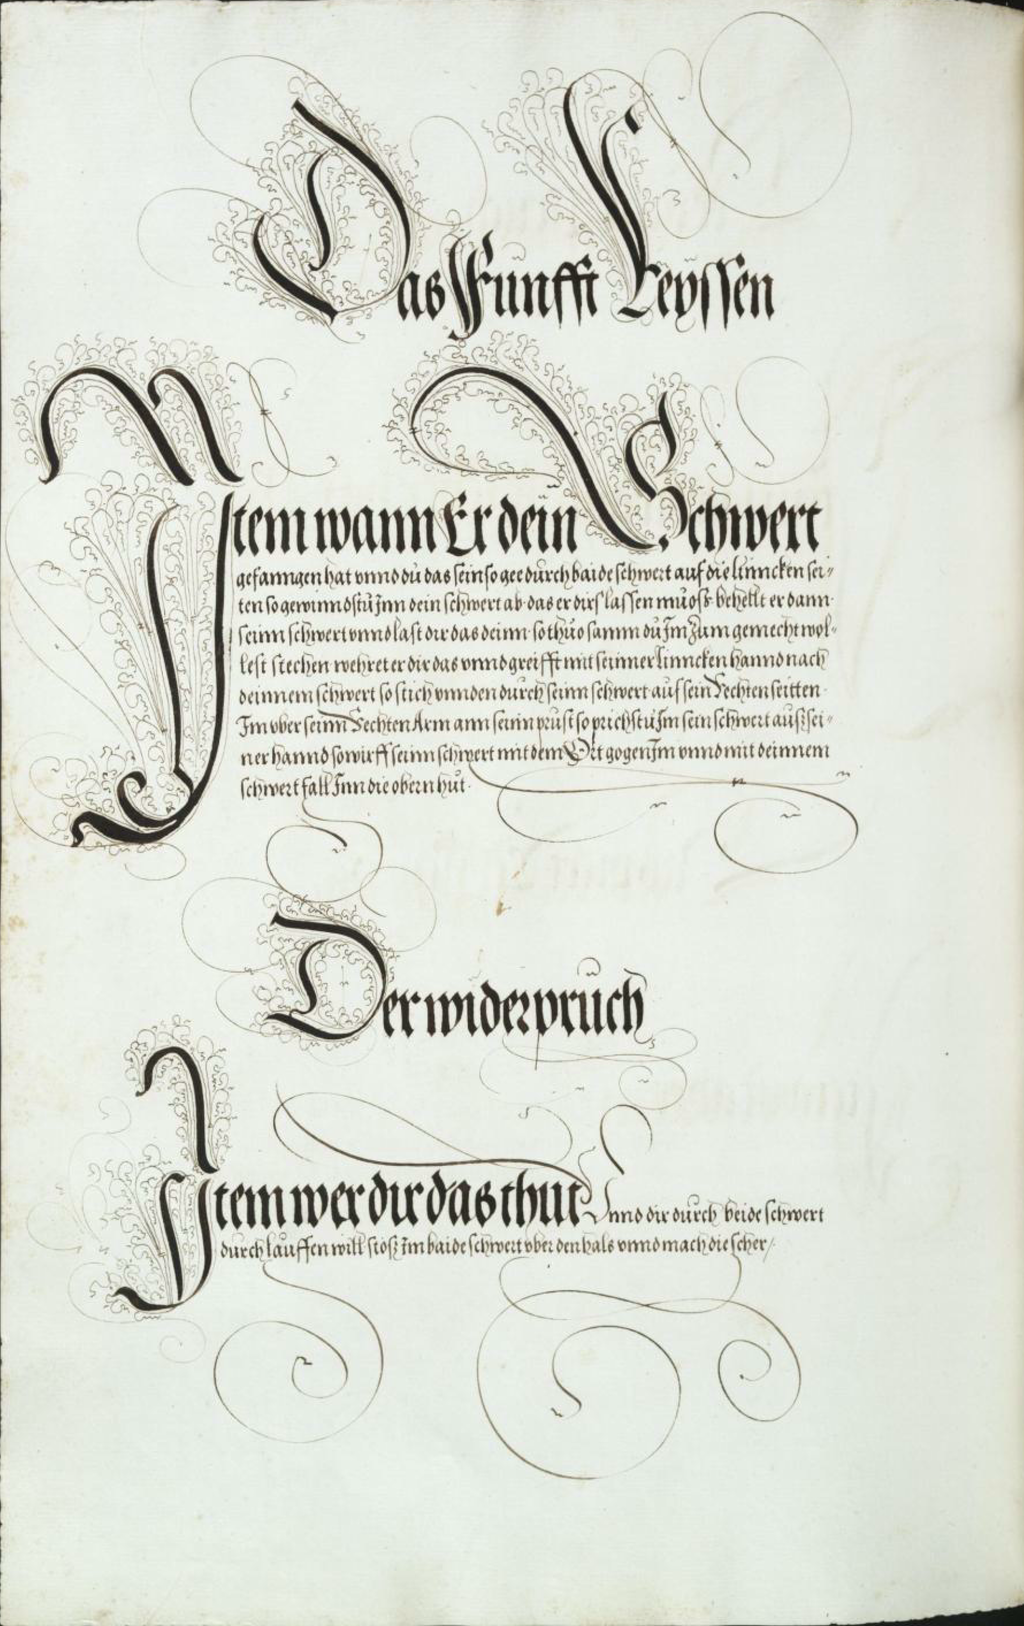 Das Fünfft Reyssen
Item wann Er dein Schwert
gefanngen hat vnnd dü das sein so gee dürch baide schwert auf die linncken sei=
ten so gewinndstü Jnn dein schwert ab das er dirs lassen müosz behellt er dann
seinn schwert vnnd last dir das deinn so thüo samm dü Jm züm gemecht wol=
lest stechen wehret er dir das vnnd greifft mit seinner linncken hannd nach
deinnem schwert so stich vnnden durch seinn schwert auf sein Rechten seitten
Jm vber seinn Rechten Arm ann seinn prüst so prichstü Jm sein schwert aüsz sei=
ner hannd so wirff seinn schwert mit dem Ort gogen Jm vnnd mit deinnem
schwert fall Jnn die obern hüt
Der widerprüch
Item wer dir das thüt Vnnd dir dürch beide schwert
dürch läuffen will stosz Jm baide schwert vber den hals vnnd mach die scher